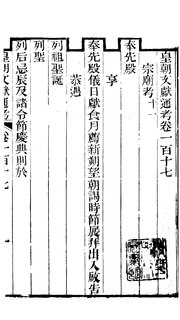 皇朝文獻通考卷一百十七
宗廟考十一
奉先殿
享
奉先殿儀日獻食月薦新朔望朝謁時節展拜出入啟告
恭遇
列祖聖誕
列聖
列后忌辰及諸令節慶典則於
皇朝文獻通考 卷一百十七